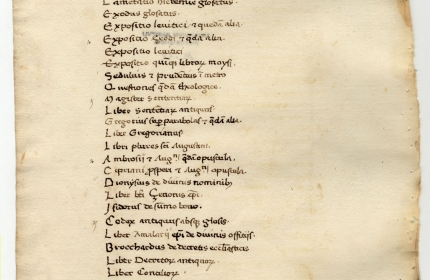 Lamentatio hieremie glosatus.
Exodus glosatus.
Expositio levitici ⁊ quedā alia.
Expositio Exodi ⁊ q̄dā alia.
Expositio levitici
Expositio quinq̨ libroꝝ moysi.
Sedulius ⁊ prudentius ī metro
Questiones q̄dā theologice.
Magister Sententiaꝝ
Liber Sentētiaꝝ antiquus
Gregorius suꝑ parabolas ⁊ q̄dā alia.
Liber Gregorianus
Libri plures sci Augustini
Ambrosii ⁊ Augni q̄dā opuscula.
Cipriani ꝓsperi ⁊ Augni opuscula
Dionysius de diuinis nominibꝫ
Liber bti epi.
Isidorus de sūmo bono.
Codex antiquus absq̨ glosis.
Liber Amalarii epi de diuinis officiis.
Brocchardus de decretis ecclīasticis
Liber Decretoꝝ antiquoꝝ.
Liber Conciliorꝝ